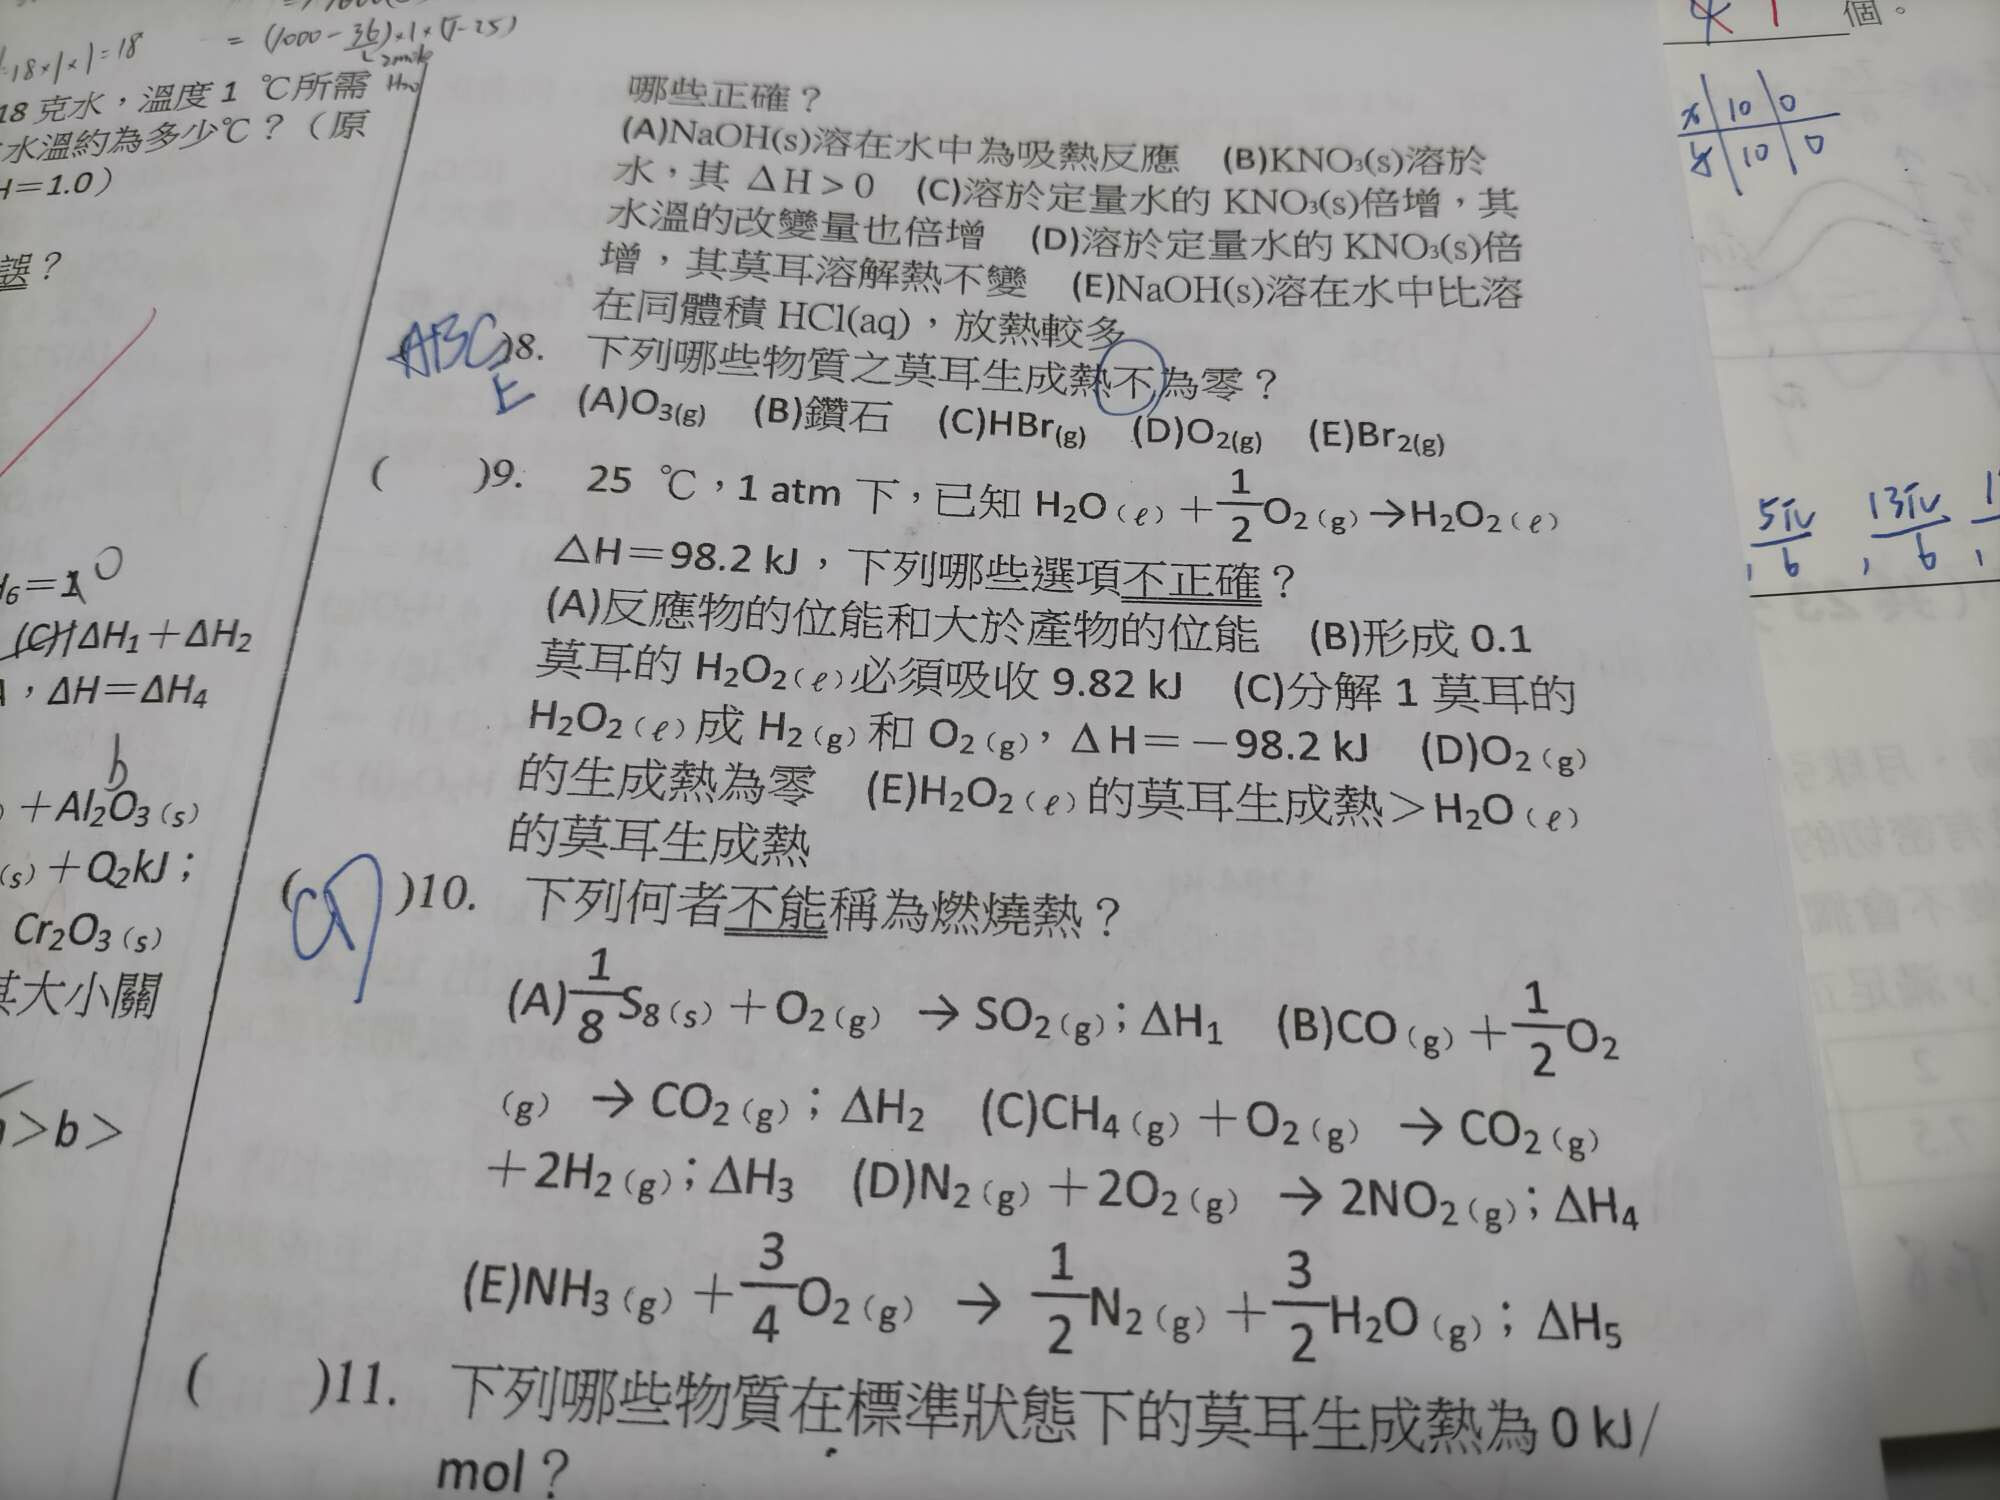 =18×1×1=18
=(1000-36)×1×(T-25)
18 克水，溫度 1 ℃所需
水溫約為多少℃？（原
H＝1.0）
誤？
H₆＝1 0
(C)ΔH₁＋ΔH₂
，ΔH＝ΔH₄
b
＋Al₂O₃(s)
(s)＋Q₂kJ；
Cr₂O₃(s)
其大小關
>b>
哪些正確？
(A)NaOH(s)溶在水中為吸熱反應 (B)KNO₃(s)溶於
水，其 ΔH＞0 (C)溶於定量水的 KNO₃(s)倍增，其
水溫的改變量也倍增 (D)溶於定量水的 KNO₃(s)倍
增，其莫耳溶解熱不變 (E)NaOH(s)溶在水中比溶
在同體積 HCl(aq)，放熱較多
(ABCE)8. 下列哪些物質之莫耳生成熱不為零？
(A)O₃(g) (B)鑽石 (C)HBr(g) (D)O₂(g) (E)Br₂(g)
( )9. 25 ℃，1 atm 下，已知 H₂O(ℓ)＋1/2O₂(g)→H₂O₂(ℓ)
ΔH＝98.2 kJ，下列哪些選項不正確？
(A)反應物的位能和大於產物的位能 (B)形成 0.1
莫耳的 H₂O₂(ℓ)必須吸收 9.82 kJ (C)分解 1 莫耳的
H₂O₂(ℓ)成 H₂(g)和 O₂(g)，ΔH＝－98.2 kJ (D)O₂(g)
的生成熱為零 (E)H₂O₂(ℓ)的莫耳生成熱＞H₂O(ℓ)
的莫耳生成熱
(CD)10. 下列何者不能稱為燃燒熱？
(A)1/8S₈(s)＋O₂(g) → SO₂(g)；ΔH₁ (B)CO(g)＋1/2O₂
(g) → CO₂(g)；ΔH₂ (C)CH₄(g)＋O₂(g) → CO₂(g)
＋2H₂(g)；ΔH₃ (D)N₂(g)＋2O₂(g) → 2NO₂(g)；ΔH₄
(E)NH₃(g)＋3/4O₂(g) → 1/2N₂(g)＋3/2H₂O(g)；ΔH₅
( )11. 下列哪些物質在標準狀態下的莫耳生成熱為 0 kJ/
mol？
1 個。
x 10 0
y 10 0
5π/6, 13π/6,